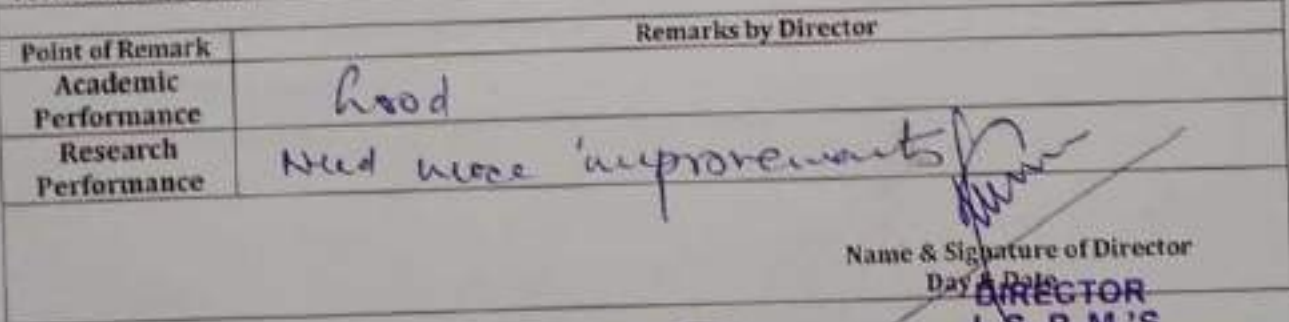 Remarks by Director
Point of Remark
Academic Performance
Good
Research Performance
Need more improvements
Name & Signature of Director
Day & Date
DIRECTOR